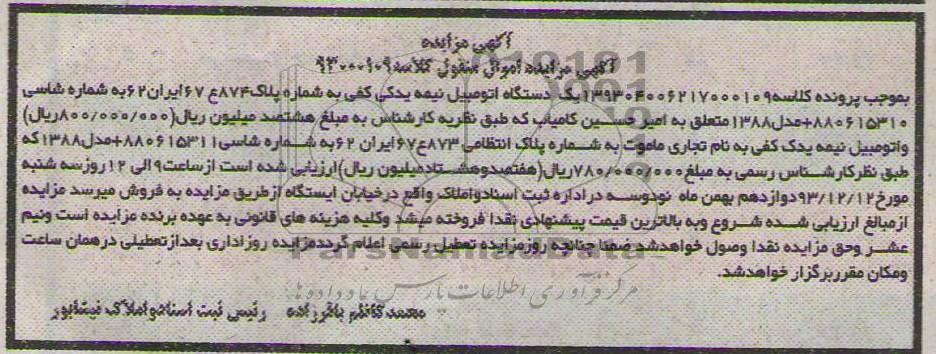 آگهی مزایده
آگهی مزایده اموال منقول کلاسه ۹۳۰۰۰۱۰۹
بموجب پرونده کلاسه ۱۳۹۳۰۴۰۰۶۲۱۷۰۰۰۱۰۹ یک دستگاه اتومبیل نیمه یدکی کفی به شماره پلاک ۸۷۴ع ۶۷ ایران ۶۲ به شماره شاسی
۸۸۰۶۱۵۳۱۰+مدل ۱۳۸۸ متعلق به امیر حسین کامیاب که طبق نظریه کارشناس به مبلغ هشتصد میلیون ریال(۸۰۰/۰۰۰/۰۰۰ریال)
واتومبیل نیمه یدک کفی به نام تجاری ماموت به شماره پلاک انتظامی ۸۷۳ع۶۷ ایران ۶۲ به شماره شاسی ۸۸۰۶۱۵۳۱۱+مدل ۱۳۸۸ که
طبق نظر کارشناس رسمی به مبلغ ۷۸۰/۰۰۰/۰۰۰ریال(هفتصدوهشتادمیلیون ریال)ارزیابی شده است از ساعت ۹ الی ۱۲ روز سه شنبه
مورخ ۹۳/۱۲/۱۲دوازدهم بهمن ماه نودوسه در اداره ثبت اسنادواملاک واقع درخیابان ایستگاه از طریق مزایده به فروش میرسد مزایده
ازمبالغ ارزیابی شده شروع وبه بالاترین قیمت پیشنهادی نقدا فروخته میشد وکلیه هزینه های قانونی به عهده برنده مزایده است ونیم
عشر وحق مزایده نقدا وصول خواهدشد ضمنا چنانچه روزمزایده تعطیل رسمی اعلام گرددمزایده روز اداری بعدازتعطیلی درهمان ساعت
ومکان مقرر برگزار خواهدشد.
مرکز فرآوری اطلاعات پارس نماد داده ها
محمد کاظم باقرزاده رئیس ثبت اسناد و املاک نیشابور